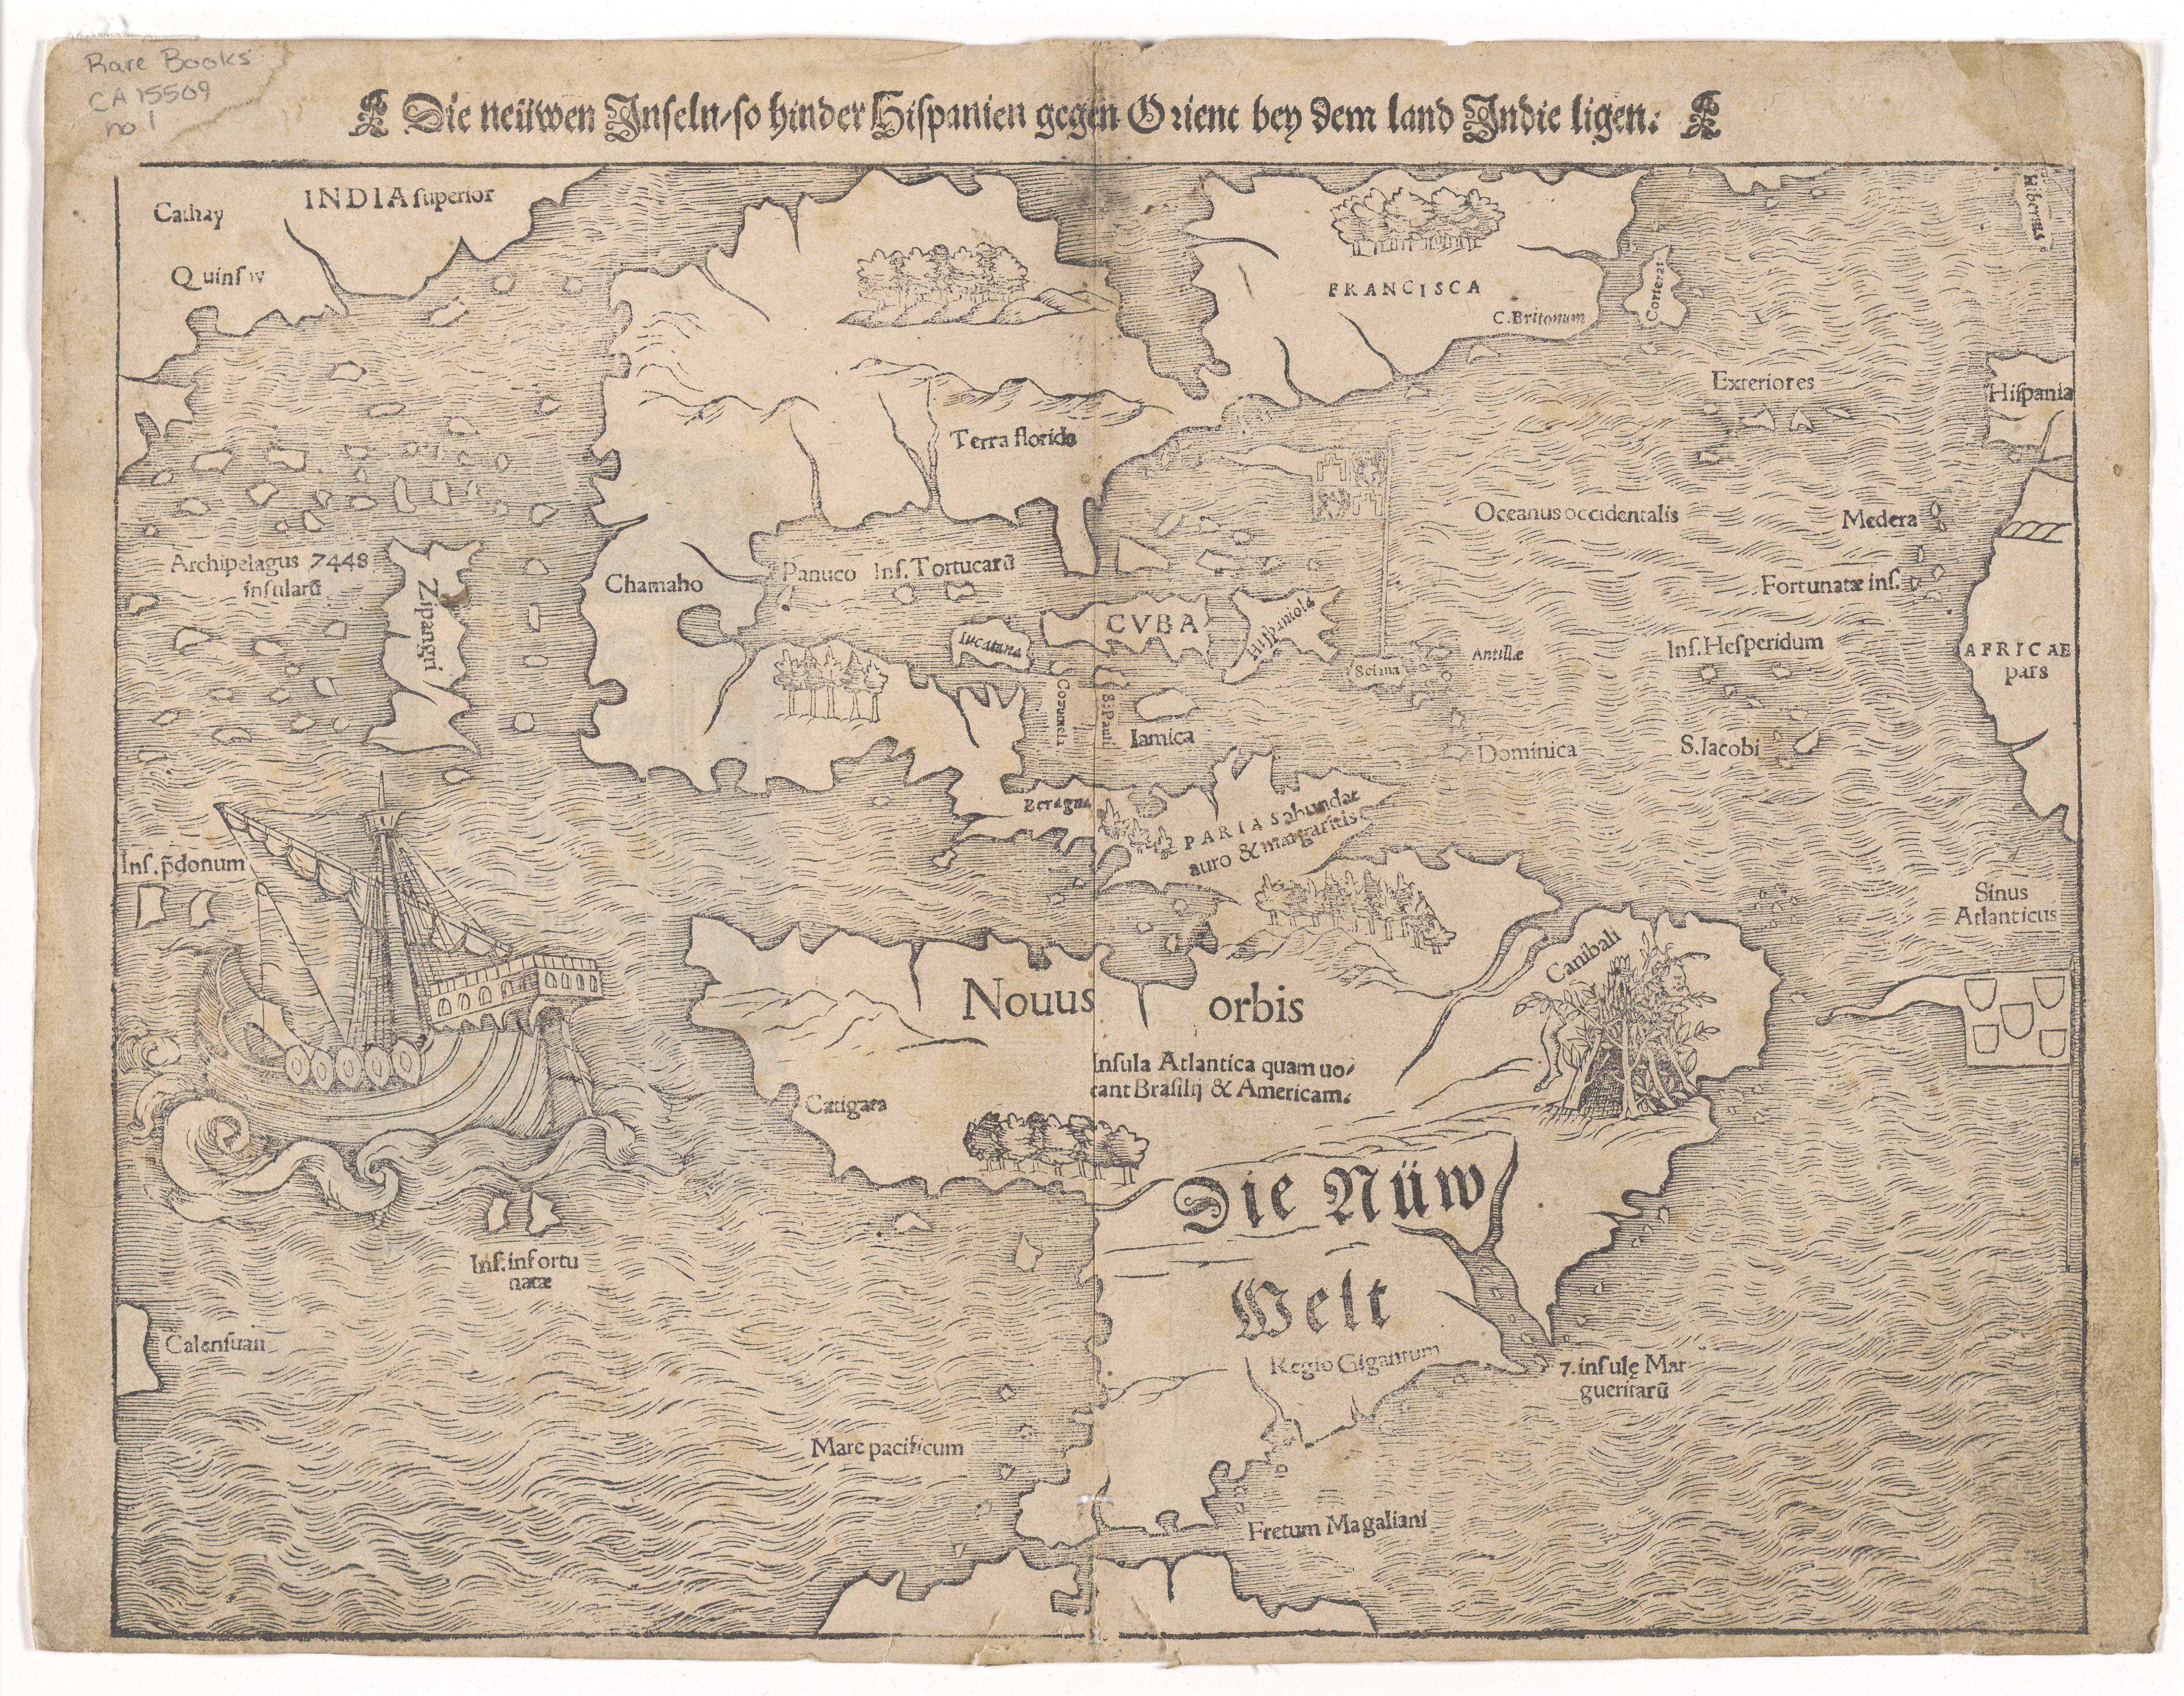 Rare Books
CA 15509
no.1
Die neüwen Inseln/so hinder Hispanien gegen Orient bey dem land Indie ligen:
Cathay
INDIA superior
Quinsay
FRANCISCA
C. Britonum
Corterat
Hibernia
Exteriores
Hispania
Terra florida
Oceanus occidentalis
Medera
Archipelagus 7448
insularũ
Zipangri
Chamaho
Panuco
Ins. Tortucarũ
Fortunatæ ins.
Iucatana
CVBA
Hispaniola
Antillæ
Ins. Hesperidum
AFRICAE
pars
Cozumela
S: Pauli
Iamica
Dominica
S. Iacobi
Beragna
PARIAS abundat
auro & margaritis
Ins. p̃donum
Sinus
Atlanticus
Canibali
Nouus orbis
Insula Atlantica quam uo-
cant Brasilij & Americam.
Catigara
Die Nüw
Welt
Ins. infortu
natæ
Calensuan
Regio Gigantum
7. insulę Mar
gueritarũ
Mare pacificum
Fretum Magaliani